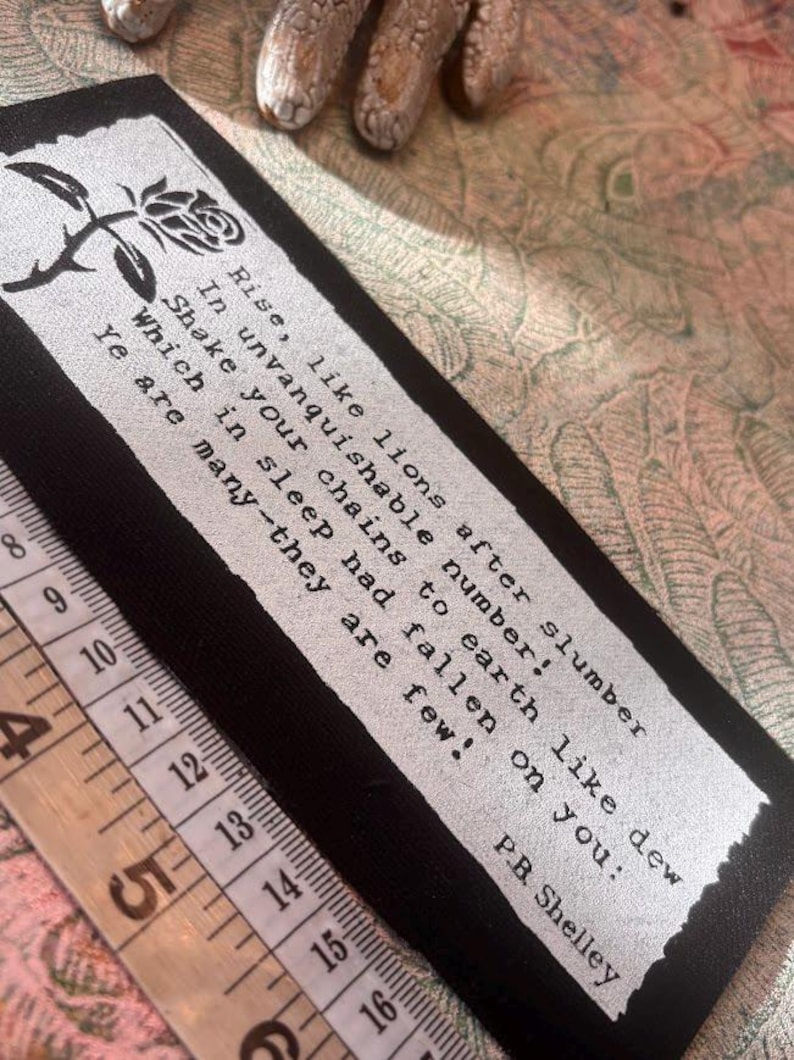 Rise, like lions after slumber
In unvanquishable number!
Shake your chains to earth like dew
Which in sleep had fallen on you:
Ye are many—they are few!
P.B Shelley
8
9
10
11
12
13
14
15
16
4
5
6